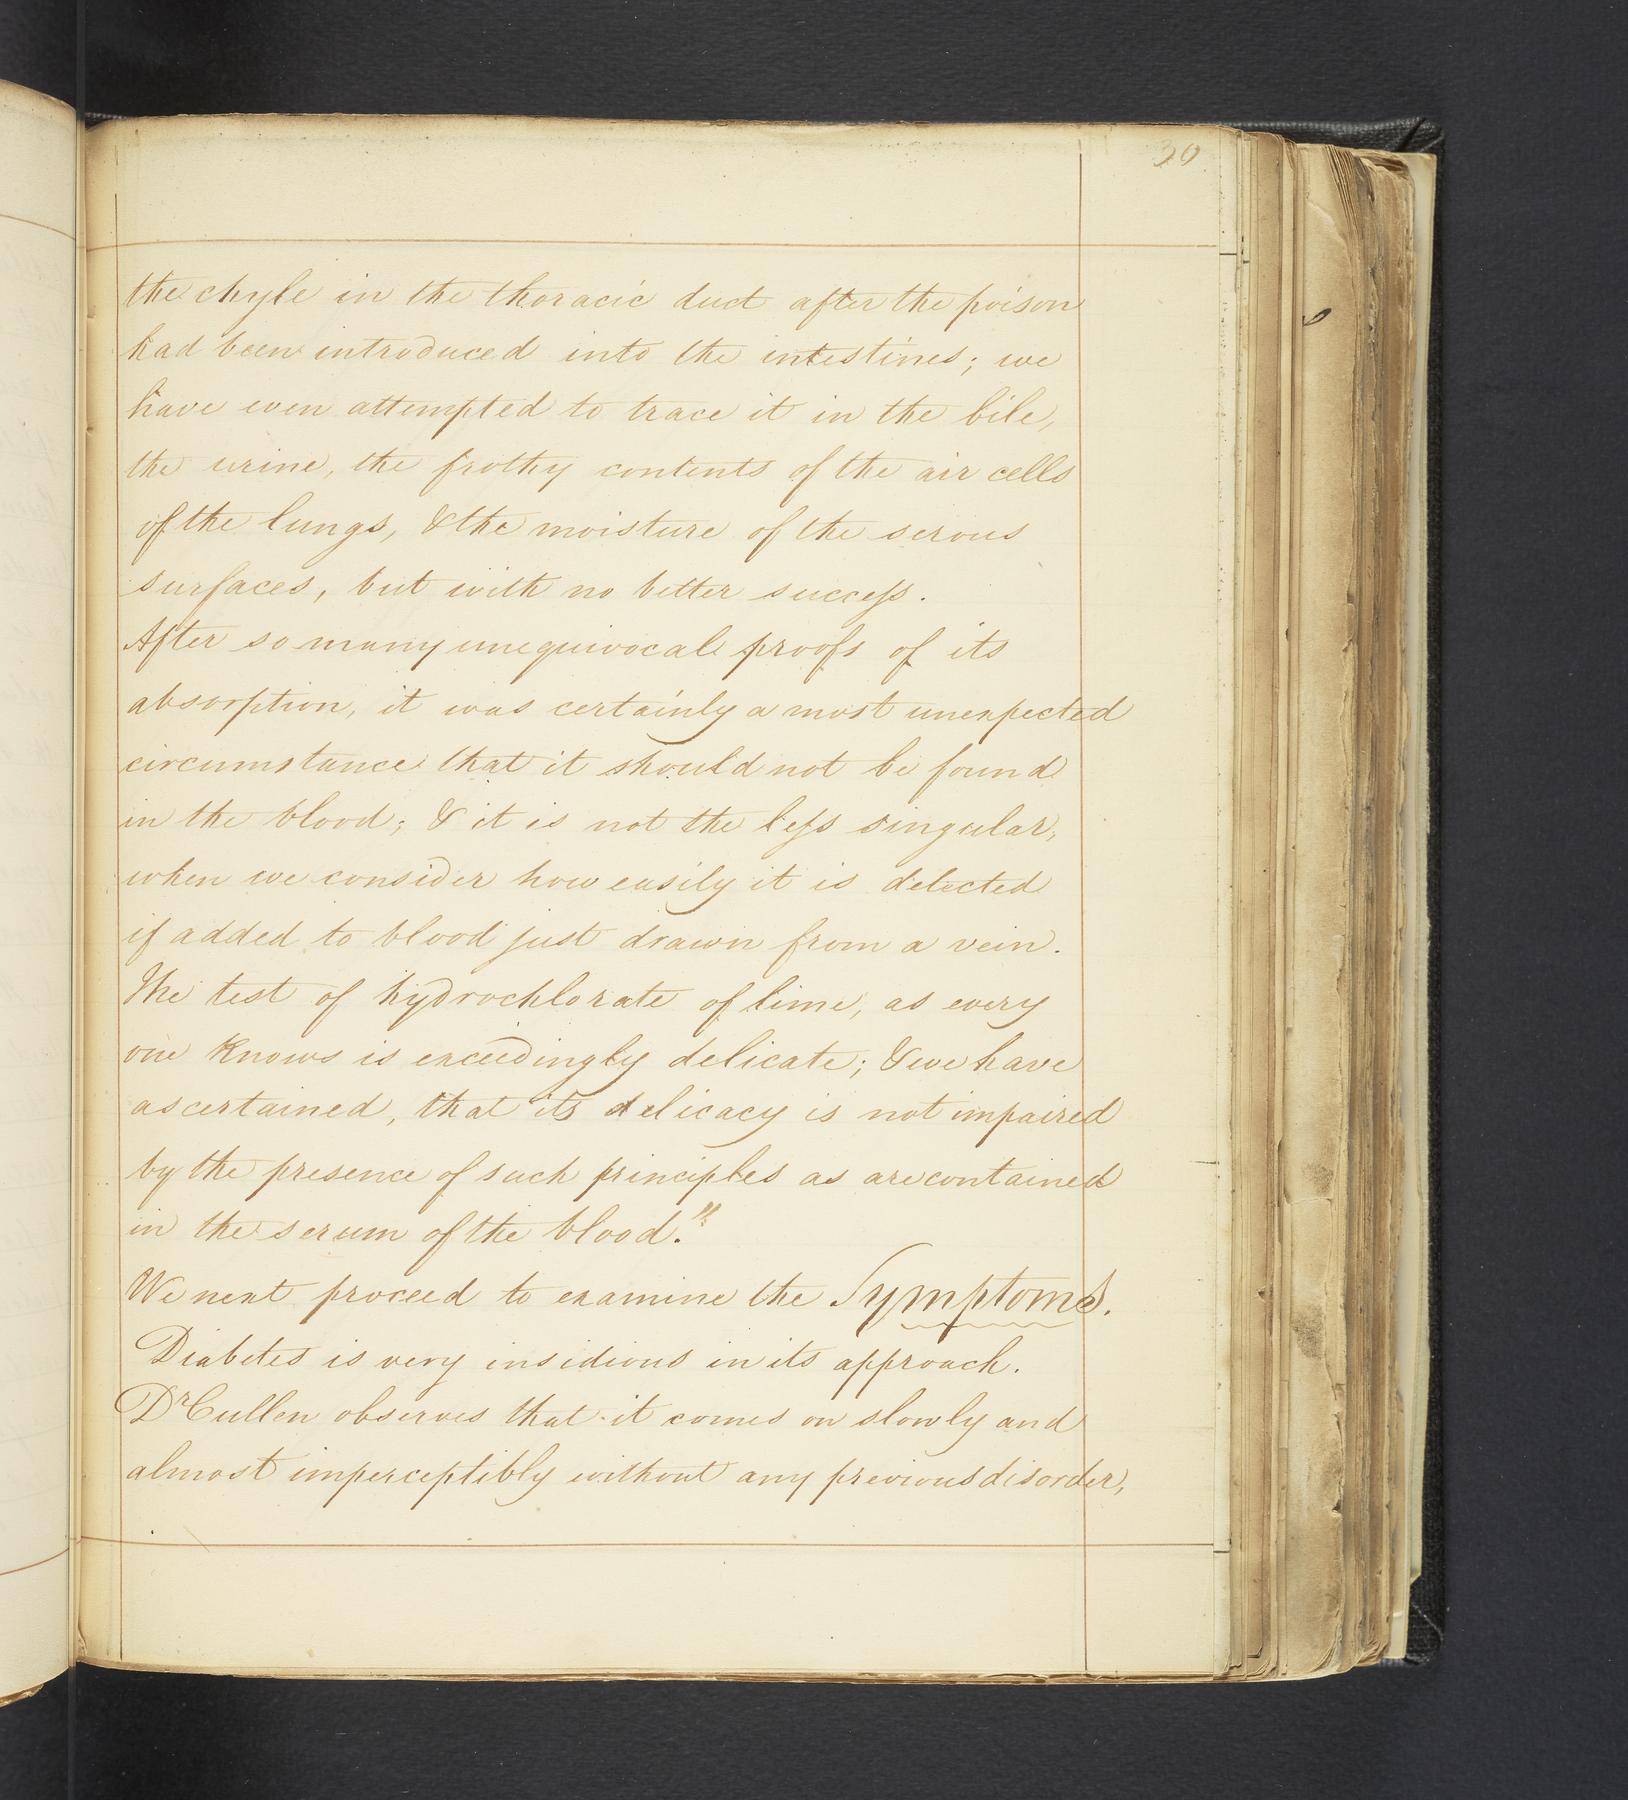 30
the chyle in the thoracic duct after the poison
had been introduced into the intestines; we
have even attempted to trace it in the bile,
the urine, the frothy contents of the air cells
of the lungs, & the moisture of the serous
surfaces, but with no better success.
After so many unequivocal proofs of its
absorption, it was certainly a most unexpected
circumstance that it should not be found
in the blood; & it is not the less singular,
when we consider how easily it is detected
if added to blood just drawn from a vein.
The test of hydrochlorate of lime, as every
one knows is exceedingly delicate; & we have
ascertained, that its delicacy is not impaired
by the presence of such principles as are contained
in the serum of the blood."
We next proceed to examine the Symptoms.
Diabetes is very insidious in its approach.
Dr Cullen observes that it comes on slowly and
almost imperceptibly without any previous disorder,